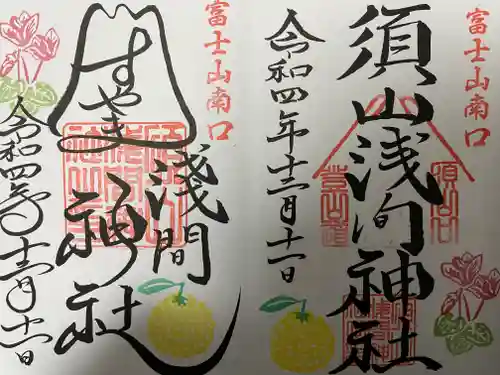 富士山南口
須山浅间神社
令和四年十二月十一日
富士山南口
すやま
浅間
神社
令和四年十二月十一日